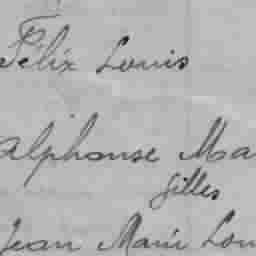 Félix Louis
Alphonse Ma
Gilles
Jean Marie Lou